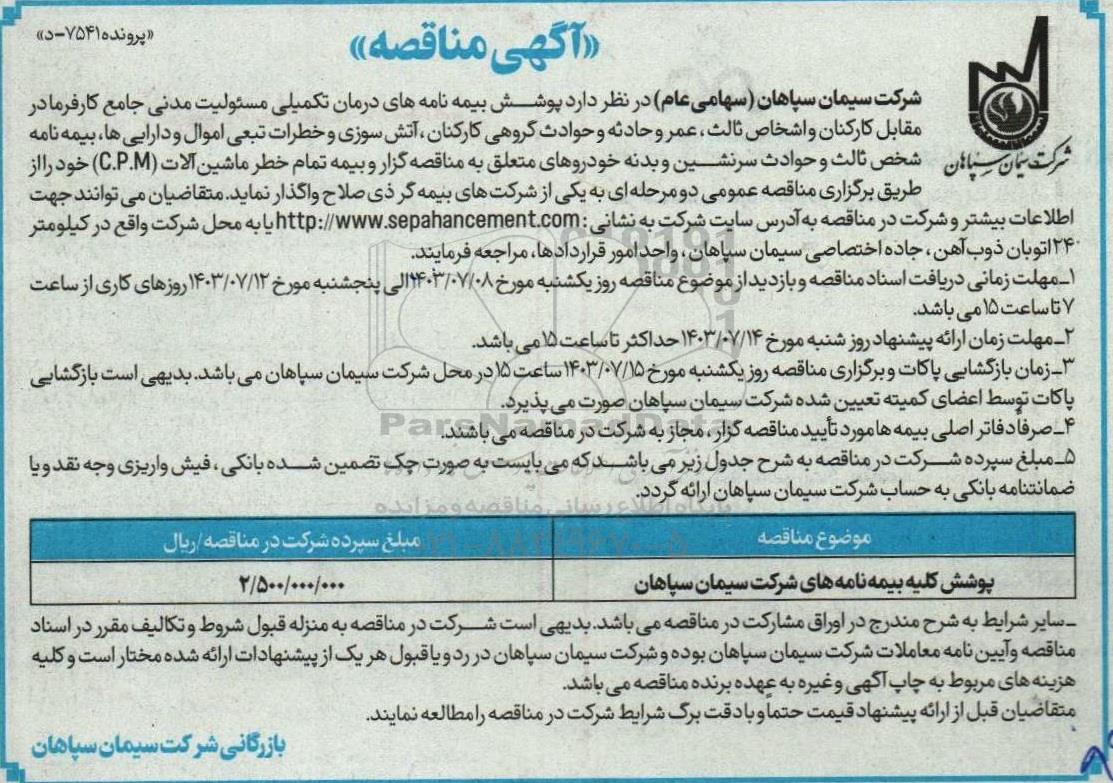 «پرونده ۷۵۴۱-د»
«آگهی مناقصه»
شرکت سیمان سپاهان
شرکت سیمان سپاهان (سهامی عام) در نظر دارد پوشش بیمه نامه های درمان تکمیلی مسئولیت مدنی جامع کارفرما در
مقابل کارکنان و اشخاص ثالث، عمر و حادثه و حوادث گروهی کارکنان، آتش سوزی و خطرات تبعی اموال و دارایی ها، بیمه نامه
شخص ثالث و حوادث سرنشین و بدنه خودروهای متعلق به مناقصه گزار و بیمه تمام خطر ماشین آلات (C.P.M) خود را از
طریق برگزاری مناقصه عمومی دو مرحله ای به یکی از شرکت های بیمه گر ذی صلاح واگذار نماید. متقاضیان می توانند جهت
اطلاعات بیشتر و شرکت در مناقصه به آدرس سایت شرکت به نشانی: http://www.sepahancement.com یا به محل شرکت واقع در کیلومتر
۲۴ اتوبان ذوب آهن، جاده اختصاصی سیمان سپاهان، واحد امور قراردادها، مراجعه فرمایند.
۱ـ مهلت زمانی دریافت اسناد مناقصه و بازدید از موضوع مناقصه روز یکشنبه مورخ ۱۴۰۳/۰۷/۰۸ الی پنجشنبه مورخ ۱۴۰۳/۰۷/۱۲ روزهای کاری از ساعت
۷ تا ساعت ۱۵ می باشد.
۲ـ مهلت زمان ارائه پیشنهاد روز شنبه مورخ ۱۴۰۳/۰۷/۱۴ حداکثر تا ساعت ۱۵ می باشد.
۳ـ زمان بازگشایی پاکات و برگزاری مناقصه روز یکشنبه مورخ ۱۴۰۳/۰۷/۱۵ ساعت ۱۵ در محل شرکت سیمان سپاهان می باشد. بدیهی است بازگشایی
پاکات توسط اعضای کمیته تعیین شده شرکت سیمان سپاهان صورت می پذیرد.
۴ـ صرفاً دفاتر اصلی بیمه ها مورد تأیید مناقصه گزار، مجاز به شرکت در مناقصه می باشند.
۵ـ مبلغ سپرده شرکت در مناقصه به شرح جدول زیر می باشد که می بایست به صورت چک تضمین شده بانکی، فیش واریزی وجه نقد و یا
ضمانتنامه بانکی به حساب شرکت سیمان سپاهان ارائه گردد.
ParsNamadData
پایگاه اطلاع رسانی مناقصه و مزایده
۰۲۱-۸۸۳۴۹۶۷۰-۵
موضوع مناقصه مبلغ سپرده شرکت در مناقصه/ریال
پوشش کلیه بیمه نامه های شرکت سیمان سپاهان ۲/۵۰۰/۰۰۰/۰۰۰
ـ سایر شرایط به شرح مندرج در اوراق مشارکت در مناقصه می باشد. بدیهی است شرکت در مناقصه به منزله قبول شروط و تکالیف مقرر در اسناد
مناقصه و آیین نامه معاملات شرکت سیمان سپاهان بوده و شرکت سیمان سپاهان در رد و یا قبول هر یک از پیشنهادات ارائه شده مختار است و کلیه
هزینه های مربوط به چاپ آگهی و غیره به عهده برنده مناقصه می باشد.
متقاضیان قبل از ارائه پیشنهاد قیمت حتماً و با دقت برگ شرایط شرکت در مناقصه را مطالعه نمایند.
بازرگانی شرکت سیمان سپاهان